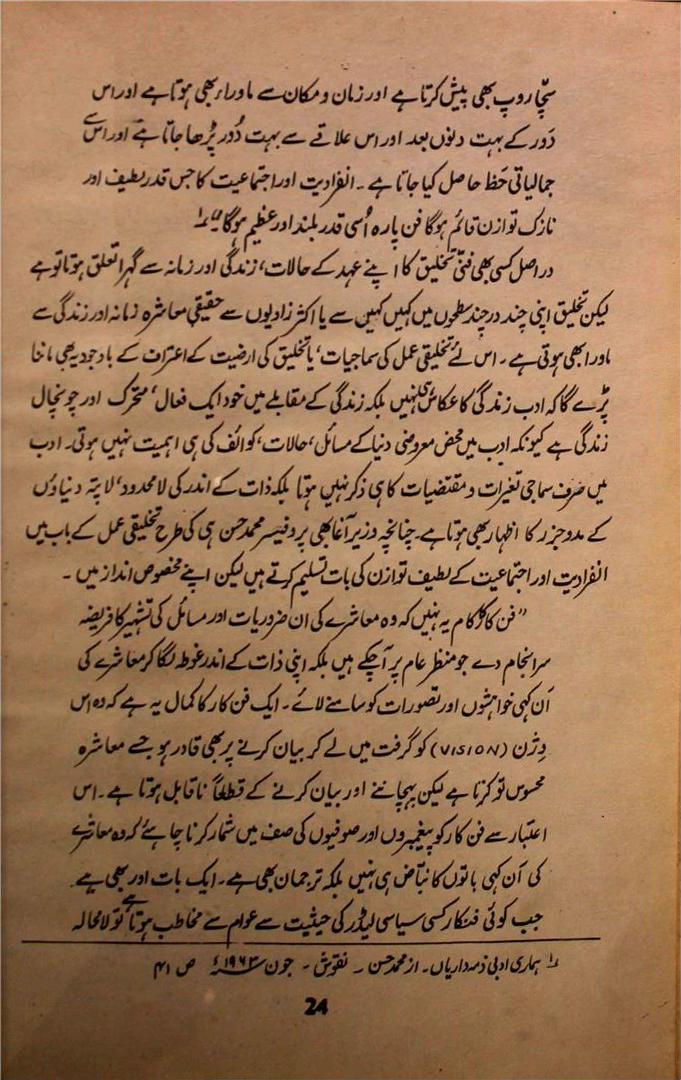 سچّا روپ بھی پیش کرتا ہے اور زمان و مکان سے ماوراء بھی ہوتا ہے اور اس
دَور کے بہت دنوں بعد اور اس علاقے سے بہت دُور پڑھا جاتا ہے اور اس سے
جمالیاتی حَظ حاصل کیا جاتا ہے۔ انفرادیت اور اجتماعیت کا جس قدر لطیف اور
نازک توازن قائم ہوگا فن پارہ اُسی قدر بلند اور عظیم ہوگا" ۱؎
در اصل کسی بھی فنّی تخلیق کا اپنے عہد کے حالات، زندگی اور زمانہ سے گہرا تعلق ہوتا تو ہے
لیکن تخلیق اپنی چند در چند سطحوں میں کہیں کہیں سے یا اکثر زاویوں سے حقیقی معاشرہ زمانہ اور زندگی سے
ماورا بھی ہوتی ہے۔ اس لئے تخلیقی عمل کی سماجیات، یا تخلیق کی ارضیت کے اعتراف کے باوجود یہ بھی ماننا
پڑے گا کہ ادب زندگی کا عکاس ہی نہیں بلکہ زندگی کے مقابلے میں خود ایک فعال، متحرک اور چونچال
زندگی ہے کیونکہ ادب میں محض معروضی دنیا کے مسائل، حالات، کوائف کی ہی اہمیت نہیں ہوتی۔ ادب
میں صرف سماجی تغیرات و مقتضیات کا ہی ذکر نہیں ہوتا بلکہ ذات کے اندر کی لا محدود، لا پتہ دنیاؤں
کے مدوجزر کا اظہار بھی ہوتا ہے۔ چنانچہ وزیر آغا بھی پروفیسر محمد حسن ہی کی طرح تخلیقی عمل کے باب میں
انفرادیت اور اجتماعیت کے لطیف توازن کی بات تسلیم کرتے ہیں لیکن اپنے مخصوص انداز میں۔
"فن کار کا کام یہ نہیں کہ وہ معاشرے کی ان ضروریات اور مسائل کی تشہیر کا فریضہ
سرانجام دے جو منظر عام پر آچکے ہیں بلکہ اپنی ذات کے اندر غوطہ لگا کر معاشرے کی
اَن کہی خواہشوں اور تصورات کو سامنے لائے۔ ایک فن کار کا کمال یہ ہے کہ وہ اس
وِژن (VISION) کو گرفت میں لے کر بیان کرنے پر بھی قادر ہو جسے معاشرہ
محسوس تو کرتا ہے لیکن پہچاننے اور بیان کرنے کے قطعاً ناقابل ہوتا ہے۔ اس
اعتبار سے فن کار کو پیغمبروں اور صوفیوں کی صف میں شمار کرنا چاہئے کہ وہ معاشرے
کی اَن کہی باتوں کا نبّاض ہی نہیں بلکہ ترجمان بھی ہے۔ ایک بات اور بھی ہے
جب کوئی فنکار کسی سیاسی لیڈر کی حیثیت سے عوام سے مخاطب ہوتا ہے تو لامحالہ
۱؎ ہماری ادبی ذمہ داریاں۔ از محمد حسن۔ نقوش۔ جون ۱۹۶۳ء ص ۴۱
24